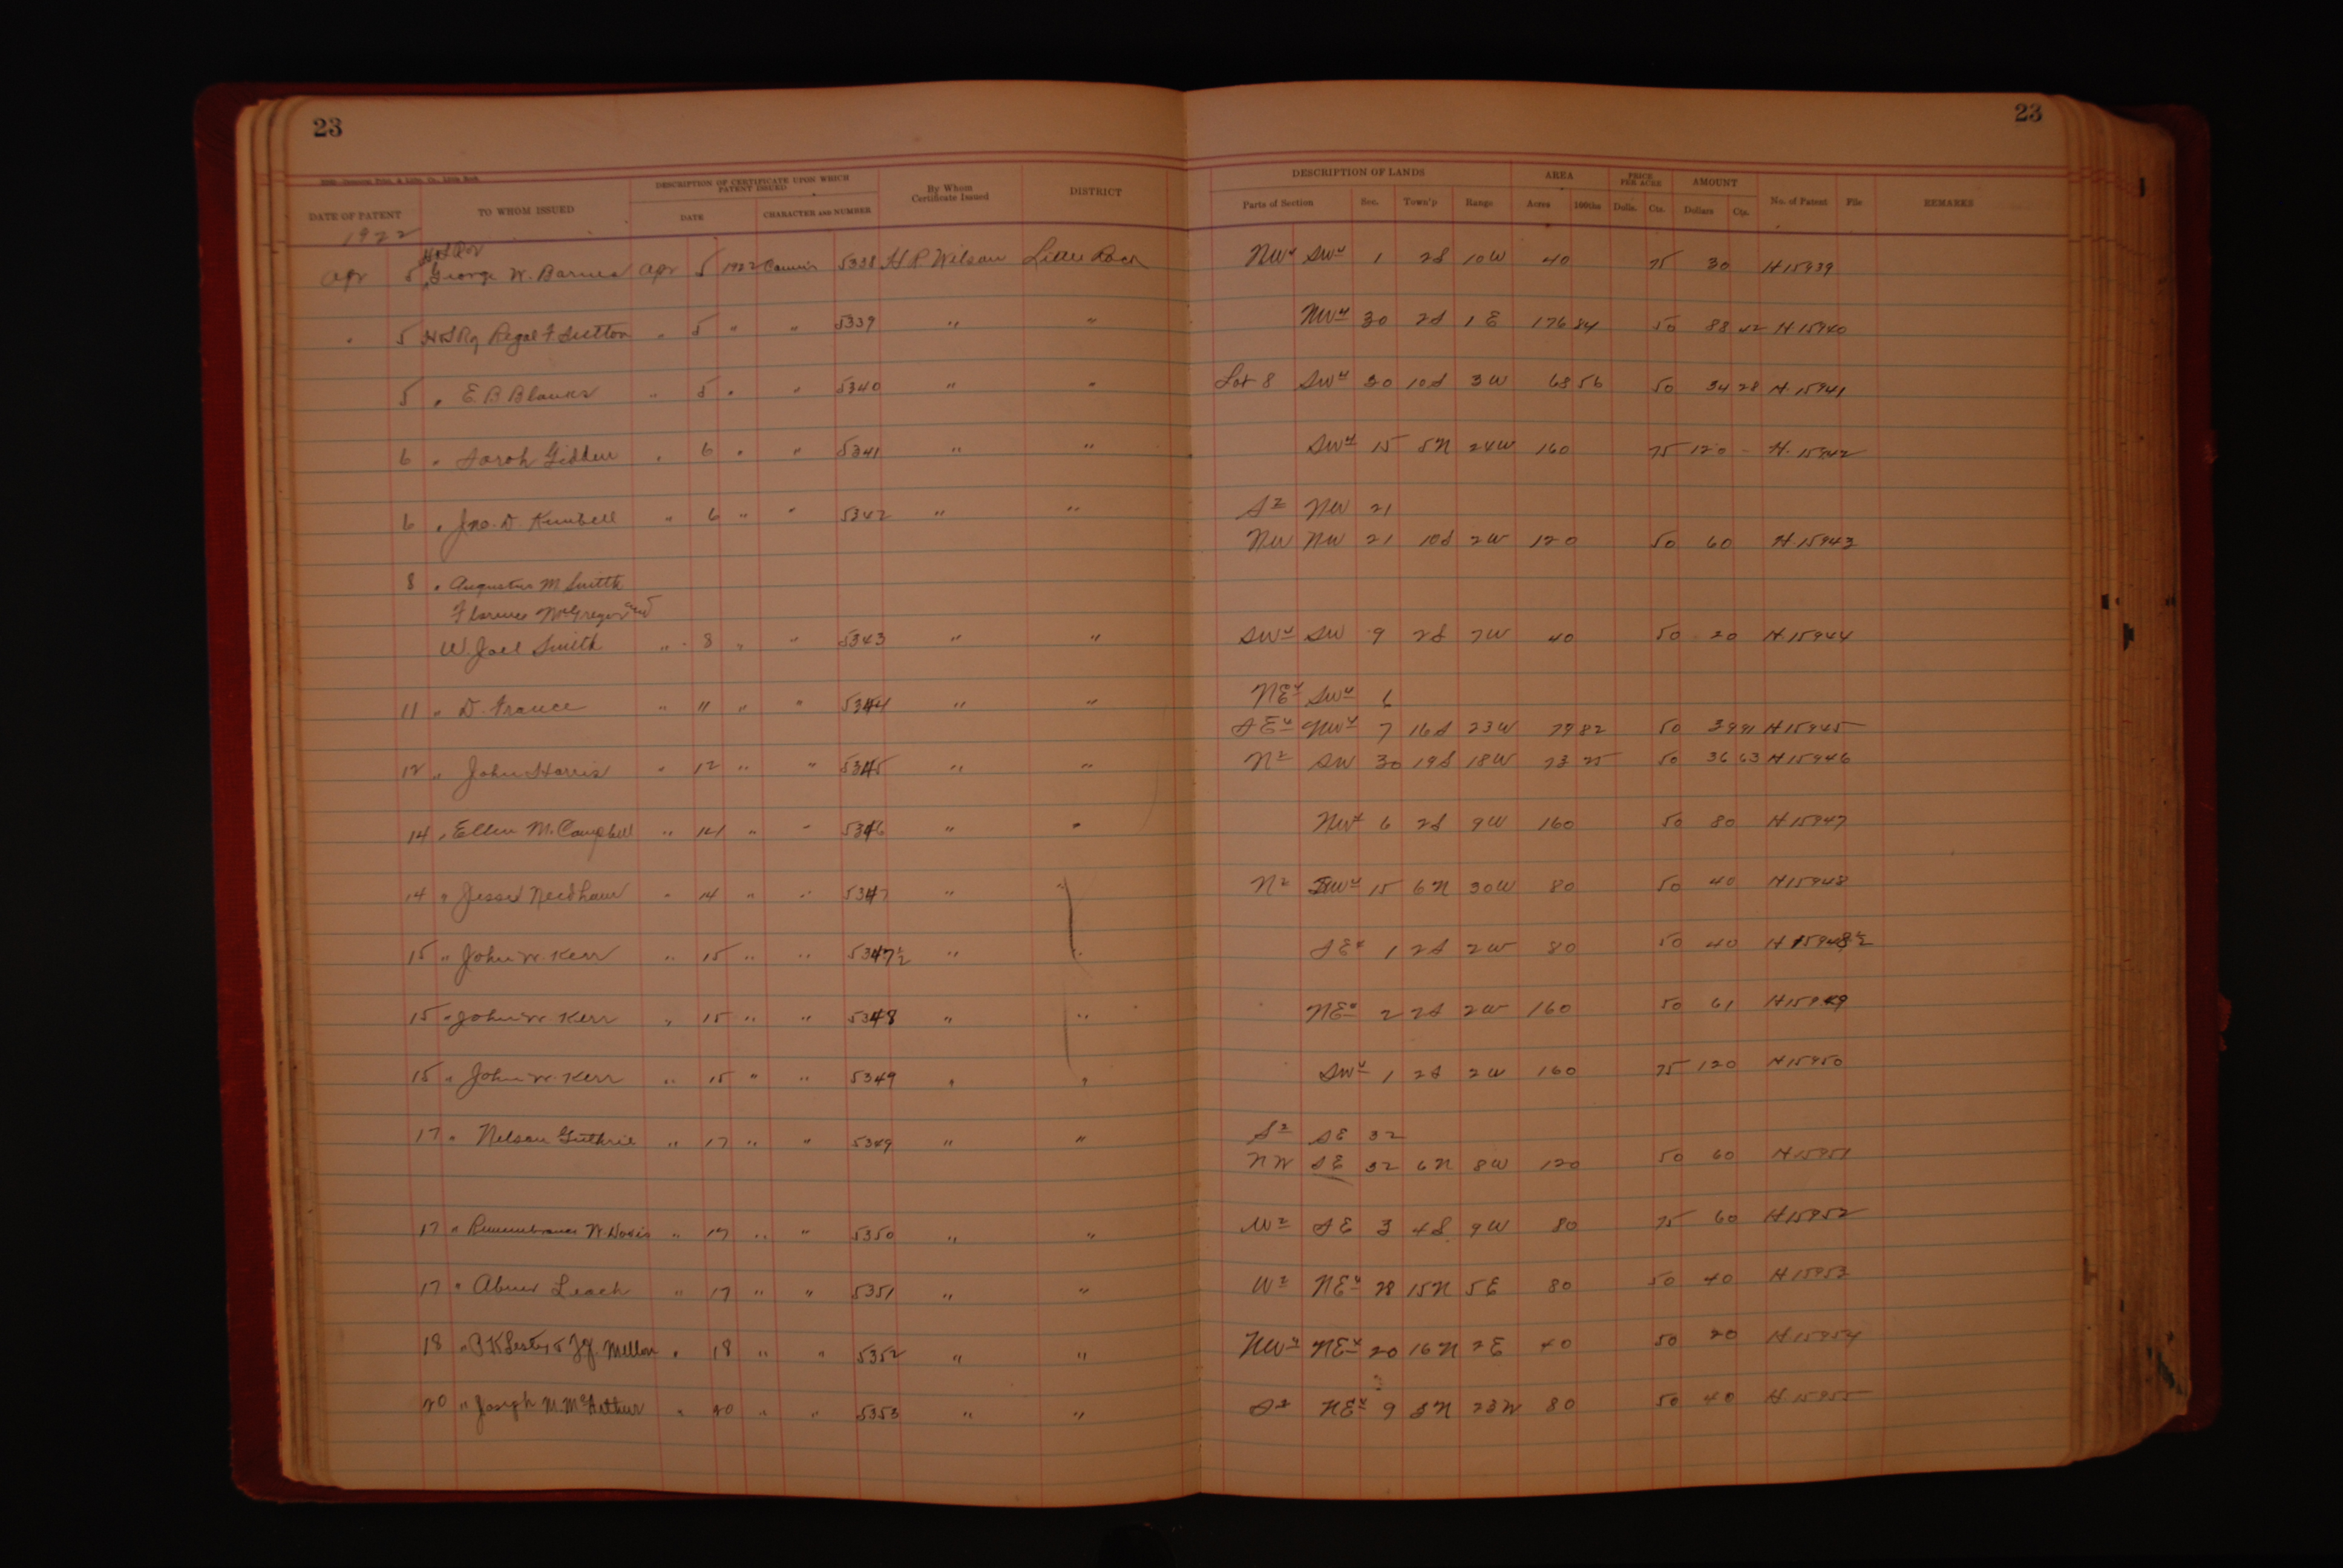 23 23
DESCRIPTION OF CERTIFICATE UPON WHICH PATENT ISSUED By Whom Certificate Issued DISTRICT DESCRIPTION OF LANDS AREA PRICE PER ACRE AMOUNT
DATE OF PATENT TO WHOM ISSUED DATE CHARACTER AND NUMBER Parts of Section Sec. Town'p Range Acres 100ths Dolls. Cts. Dollars Cts. No. of Patent File REMARKS
1922
Apr 5 George W. Barnes Apr 5 1922 5338 H R Wilson Little Rock NW4 SW4 1 2S 10W 40 75 30 H15939
" 5 Regal F Sutton " 5 " " 5339 " " NW4 30 2S 1E 176 84 50 88 42 H15940
5 " E. B. Blanks " 5 " " 5340 " " Lot 8 SW4 30 10S 3W 68 56 50 34 28 H.15941
6 " Sarah " 6 " " 5341 " " SW4 15 5N 24W 160 75 120 - H.15942
6 " Jno. D. Kimbell " 6 " " 5342 " " S2 NW 21
NW NW 21 10S 2W 120 50 60 H.15943
8 " Augustus M Smith
Florence McGregor and
W. Joel Smith " 8 " " 5343 " " SW4 SW 9 2S 7W 40 50 20 H15944
11 " D. France " 11 " " 5344 " " NE4 SW4 6
SE4 NW4 7 16S 23W 79 82 50 39 91 H15945
12 " John Harris " 12 " " 5345 " " N2 SW 30 19S 18W 73 25 50 36 63 H15946
14 " Ellen McCampbell " 14 " " 5346 " " NW4 6 2S 9W 160 50 80 H15947
14 " Jesse Needham " 14 " " 5347 " " N2 15 6N 30W 80 50 40 H15948
15 " John W. Kerr " 15 " " 5347½ " " SE4 1 2S 2W 80 50 40 H15948½
15 " John W. Kerr " 15 " " 5348 " " NE4 2 2S 2W 160 50 61 H15949
15 " John W. Kerr " 15 " " 5349 " " SW4 1 2S 2W 160 75 120 H15950
17 " Nelson Guthrie " 17 " " 5349 " " S2 SE 32
NW SE 32 6N 8W 120 50 60 H15951
17 " Remembrance W. Davis " 17 " " 5350 " " W2 SE 3 4S 9W 80 75 60 H15952
17 " Abner Leach " 17 " " 5351 " " W2 NE4 28 15N 5E 80 50 40 H15953
18 " Mellon " 18 " " 5352 " " NW4 NE4 20 16N 2E 40 50 20 H15954
20 " Joseph N. McArthur " 20 " " 5353 " " S2 NE4 9 3N 23W 80 50 40 H15955